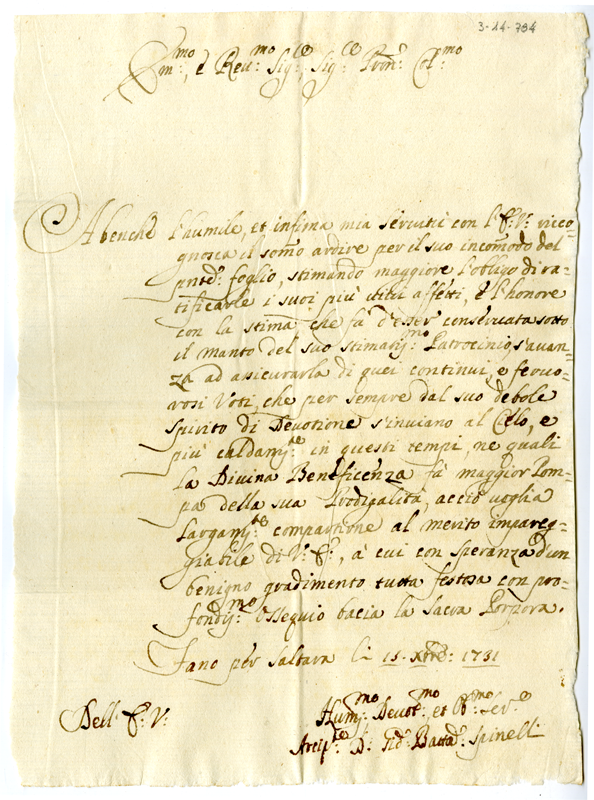 3-44-784
Em:mo, e Reu:mo Sig:re, Sig:re Pron: Col:mo
Abenche l'humile, et infima mia seruitù con l'E: V: ricco=
gnosca il somo ardire per il suo incomodo del
pnte: foglio, stimando maggiore l'obligo di ra=
tificarle i suoi più affetti, e l'honore
con la stima, che fà d'esser conseruata sotto
il manto del suo stimatis:mo Patrocinio, s'auan=
za ad assicurarla di quei continui, e feruo=
rosi Voti, che per sempre dal suo debole
spirito di Deuotione s'inuiano al Cielo, e
più caldam:te in questi tempi, ne quali
la Diuina Beneficenza fà maggior Pom=
pa della sua Prodigalità, acciò voglia
largam:te compartirne al merito impareg=
giabile di V: E:, à cui con speranza d'un
benigno gradimento tutta festosa con pro=
fondis:mo Ossequio bacia la Sacra Porpora.
Fano per Saltara li 15. Xbre: 1731
Dell' E: V:
Humis:mo Deuot:mo et Ob:mo Ser:e
Arcip:te D: Gio: Batta: Spinelli